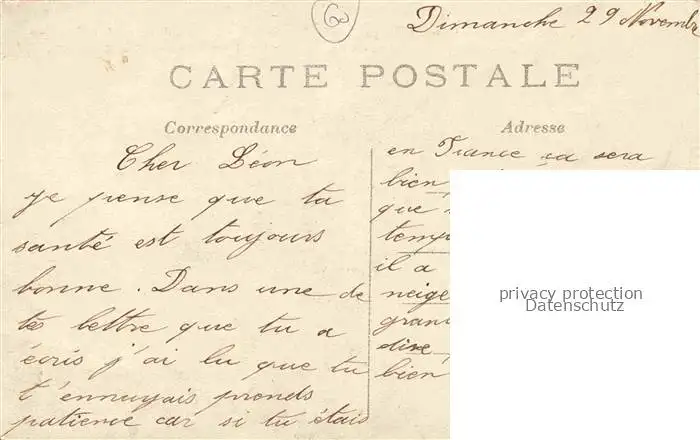 Dimanche 29 Novembre
CARTE POSTALE
Correspondance
Cher Léon
je pense que ta
santé est toujours
bonne. Dans une de
tes lettre que tu a
écris j'ai lu que tu
t'ennuyais prends
patience car si tu étais
Adresse
en France ça sera
bien
que
temp
il a
neige
gran
dire
bien
privacy protection
Datenschutz